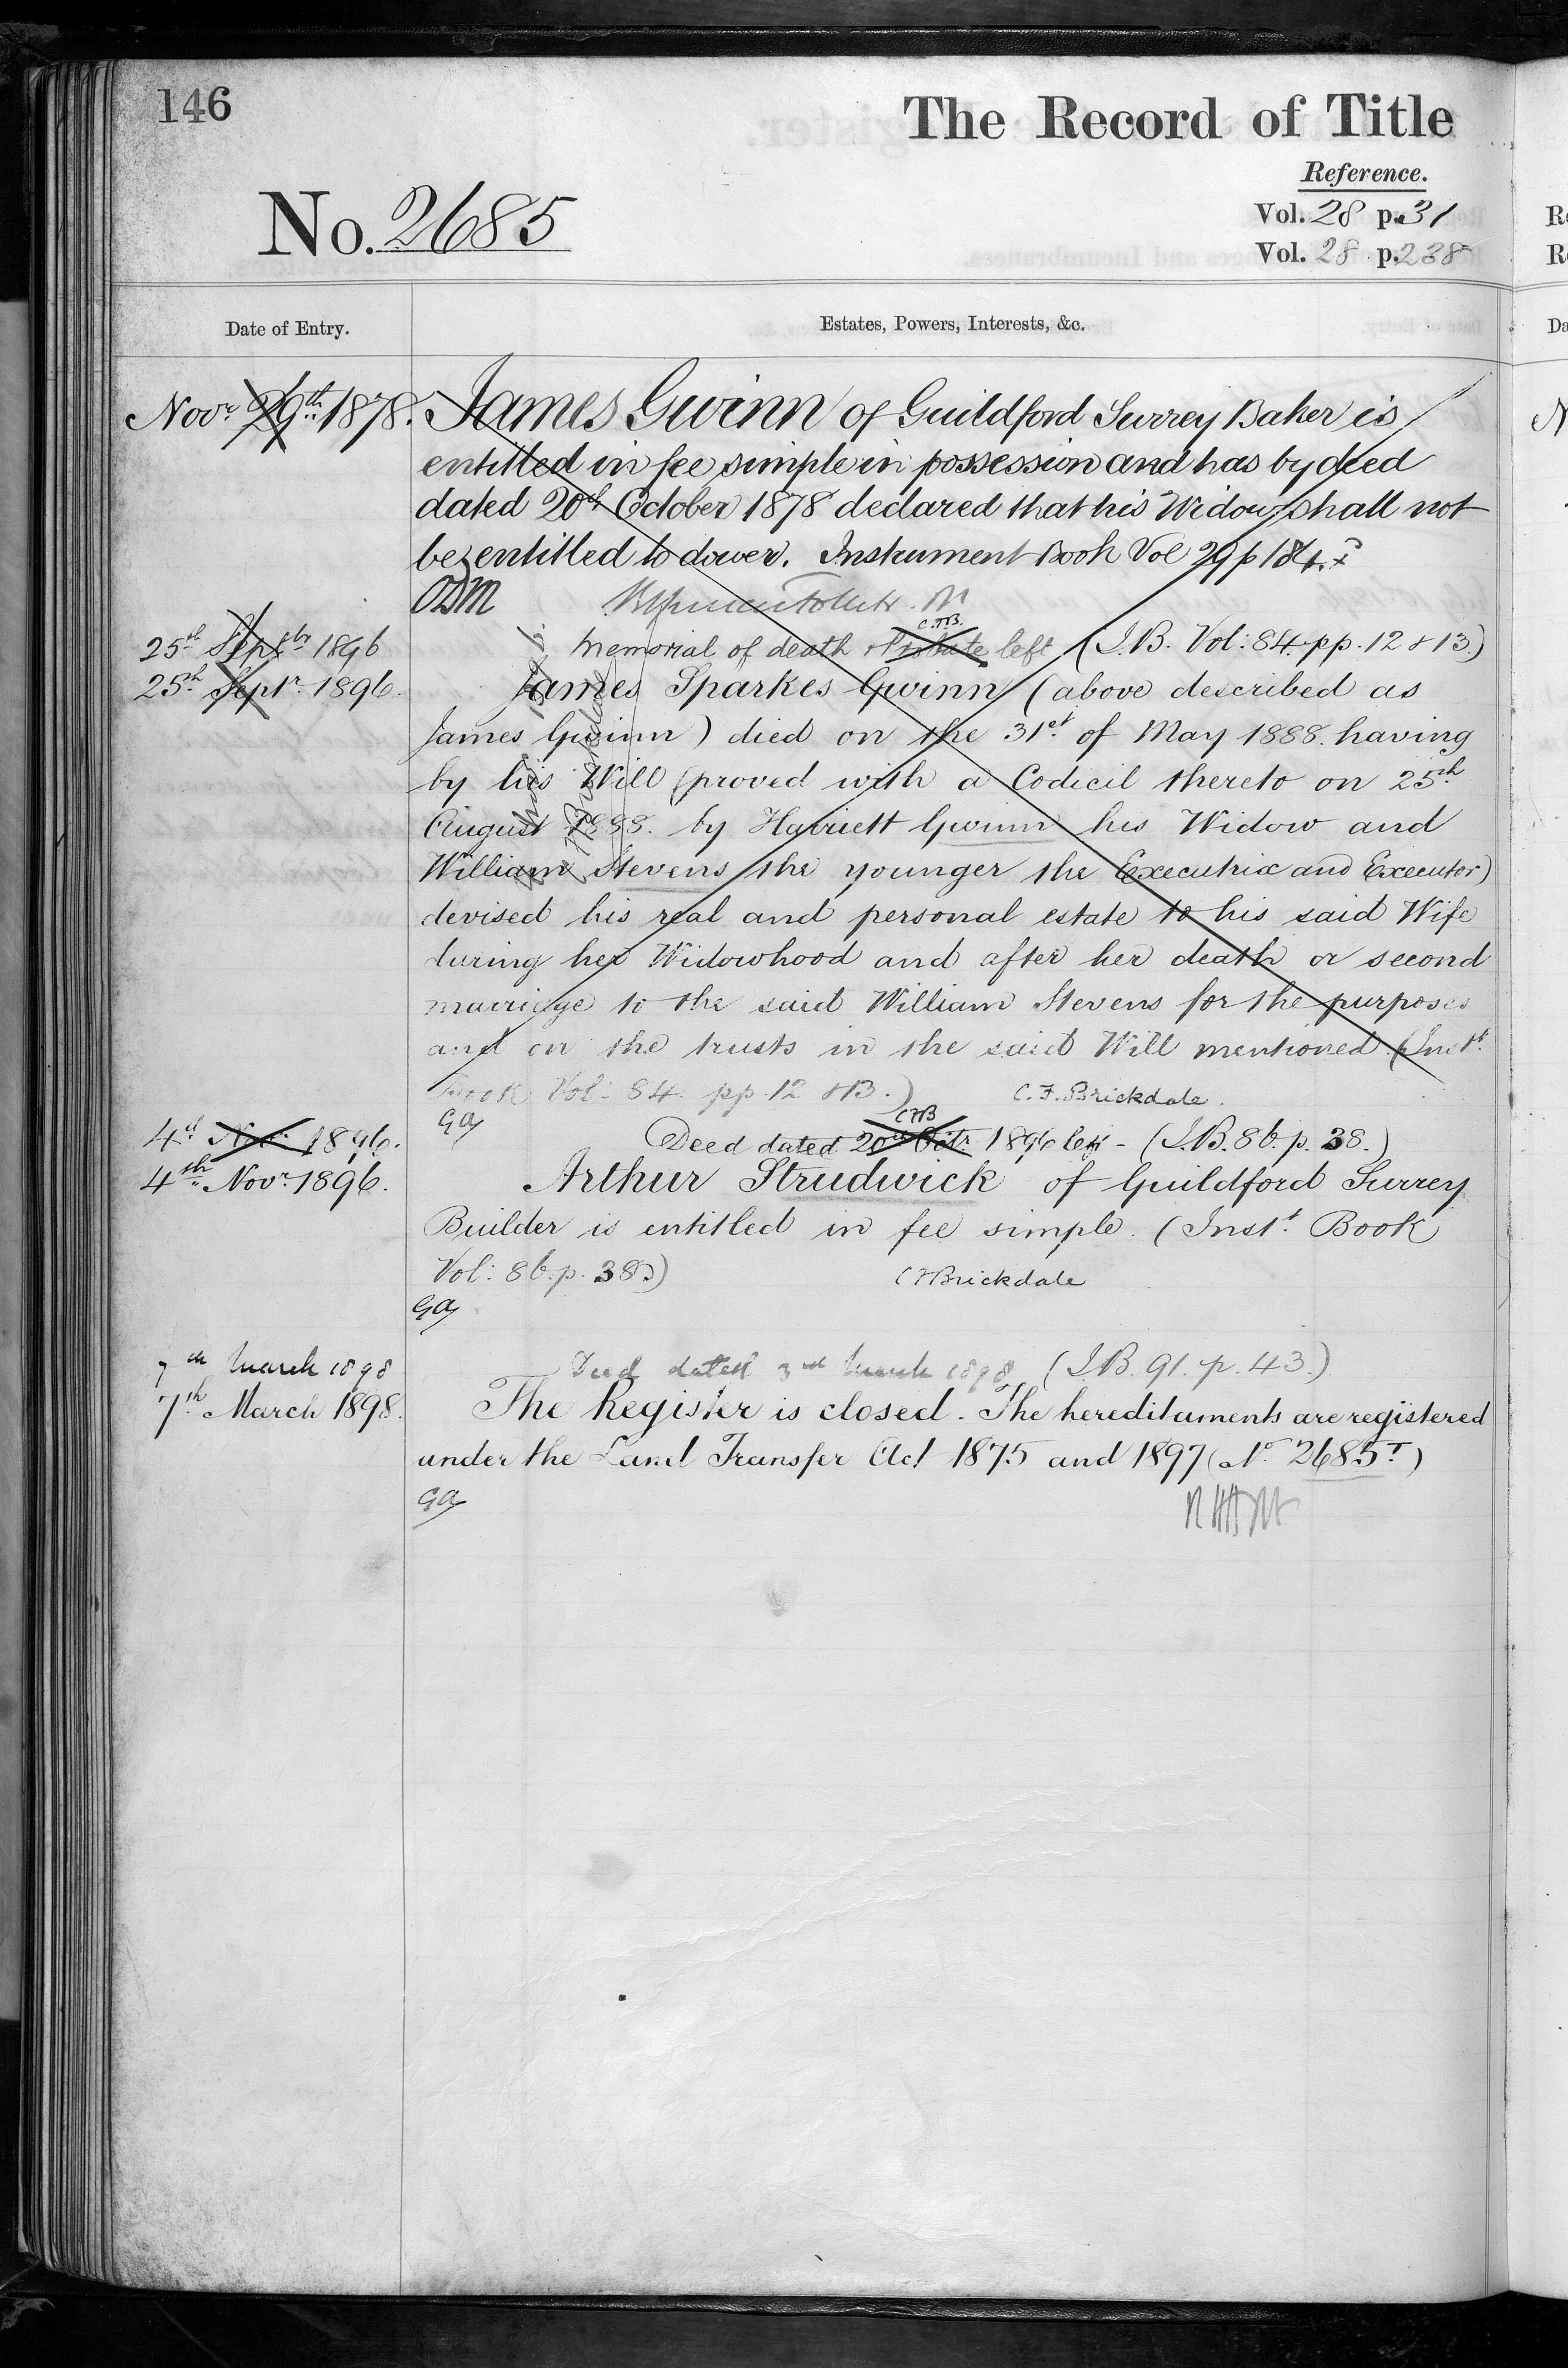 146
The Record of Title
Reference.
No. 2685
Vol. 28 p. 31
Vol. 28 p. 238
Date of Entry.
Estates, Powers, Interests, &c.
Novr. 29th 1878.
James Gwinn of Guildford Surrey Baker is
entitled in fee simple in possession and has by deed
dated 20th October 1878 declared that his Widow shall not
be entitled to dower. Instrument Book Vol 29 p 184.
ODM
25th Septr 1896
C.F.B.
Memorial of death & Probate left (I.B. Vol: 84 pp. 12 & 13)
25th Septr. 1896.
James Sparkes Gwinn (above described as
James Gwinn) died on the 31st of May 1888. having
by his Will (proved with a Codicil thereto on 25th
August 1888. by Harriett Gwinn his Widow and
William Stevens the younger the Executrix and Executor)
devised his real and personal estate to his said Wife
during her Widowhood and after her death or second
marriage to the said William Stevens for the purposes
and on the trusts in the said Will mentioned (Inst.t
Book Vol: 84 pp. 12 & 13.) C. F. Brickdale.
GA
4th Nov. 1896.
CFB
Deed dated 20th Octr 1896 left - (I.B. 86. p. 38.)
4th Novr. 1896.
Arthur Strudwick of Guildford Surrey
Builder is entitled in fee simple. (Inst.t Book
Vol: 86. p. 38.) C F Brickdale
GA
7th March 1898
Deed dated 3rd March 1898 (I.B. 91. p. 43.)
7th March 1898.
The Register is closed. The hereditaments are registered
under the Land Transfer Act 1875 and 1897 (No 2685T)
GA